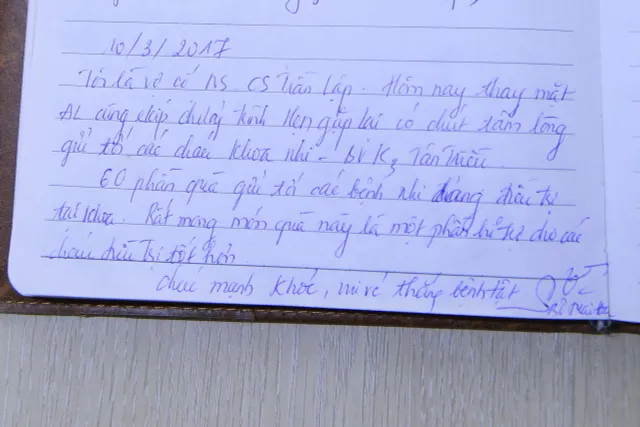 10/3/2017
Tôi là vợ cố NS. CS Trần Lập. Hôm nay thay mặt
AL cùng ekip chương trình Hẹn gặp lại có chút tấm lòng
gửi tới các cháu khoa nhi - BV K3 Tân Triều.
60 phần quà gửi tới các bệnh nhi đang điều trị
tại khoa. Rất mong món quà này là một phần hỗ trợ cho các
cháu điều trị tốt hơn.
Chúc mạnh khoẻ, vui vẻ thắng bệnh tật